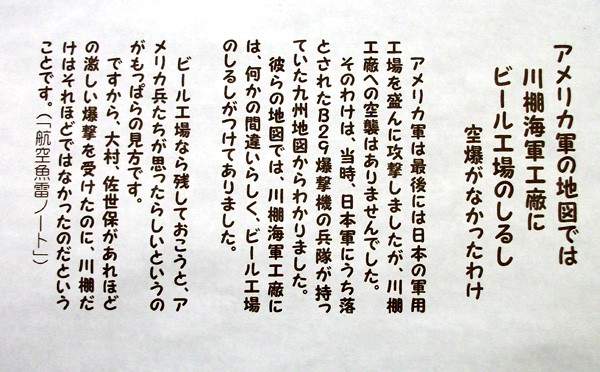 アメリカ軍の地図では
川棚海軍工廠に
ビール工場のしるし
空爆がなかったわけ
アメリカ軍は最後には日本の軍用
工場を盛んに攻撃しましたが、川棚
工廠への空襲はありませんでした。
そのわけは、当時、日本軍にうち落
とされたB29爆撃機の兵隊が持っ
ていた九州地図からわかりました。
彼らの地図では、川棚海軍工廠に
は、何かの間違いらしく、ビール工場
のしるしがつけてありました。
ビール工場なら残しておこうと、ア
メリカ兵たちが思ったらしいというの
がもっぱらの見方です。
ですから、大村、佐世保があれほど
の激しい爆撃を受けたのに、川棚だ
けはそれほどではなかったのだという
ことです。(「航空魚雷ノート」)